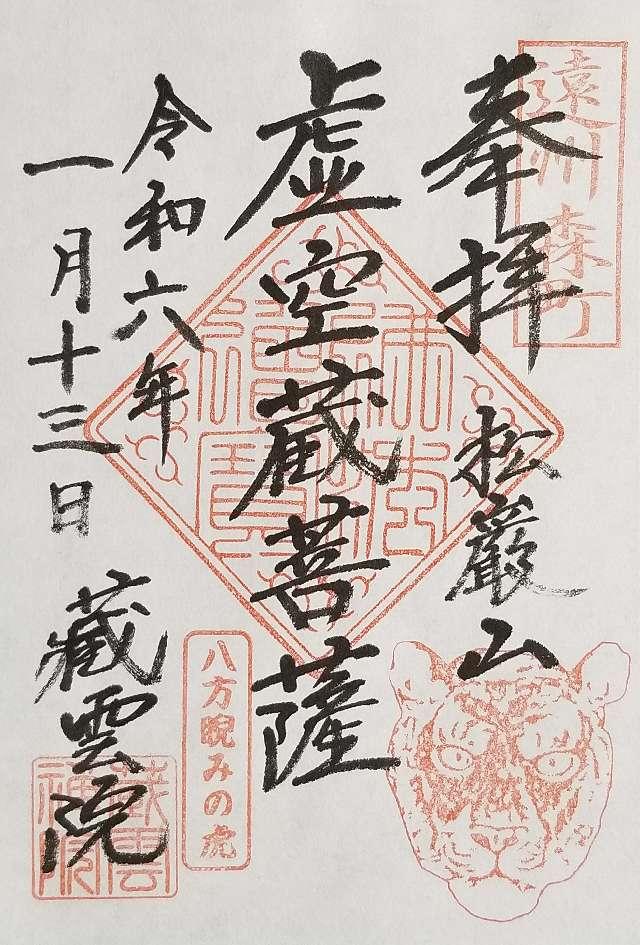 遠州 森町
奉拝 松巖山
虚空蔵菩薩
令和六年
一月十三日 蔵雲院
八方睨みの虎